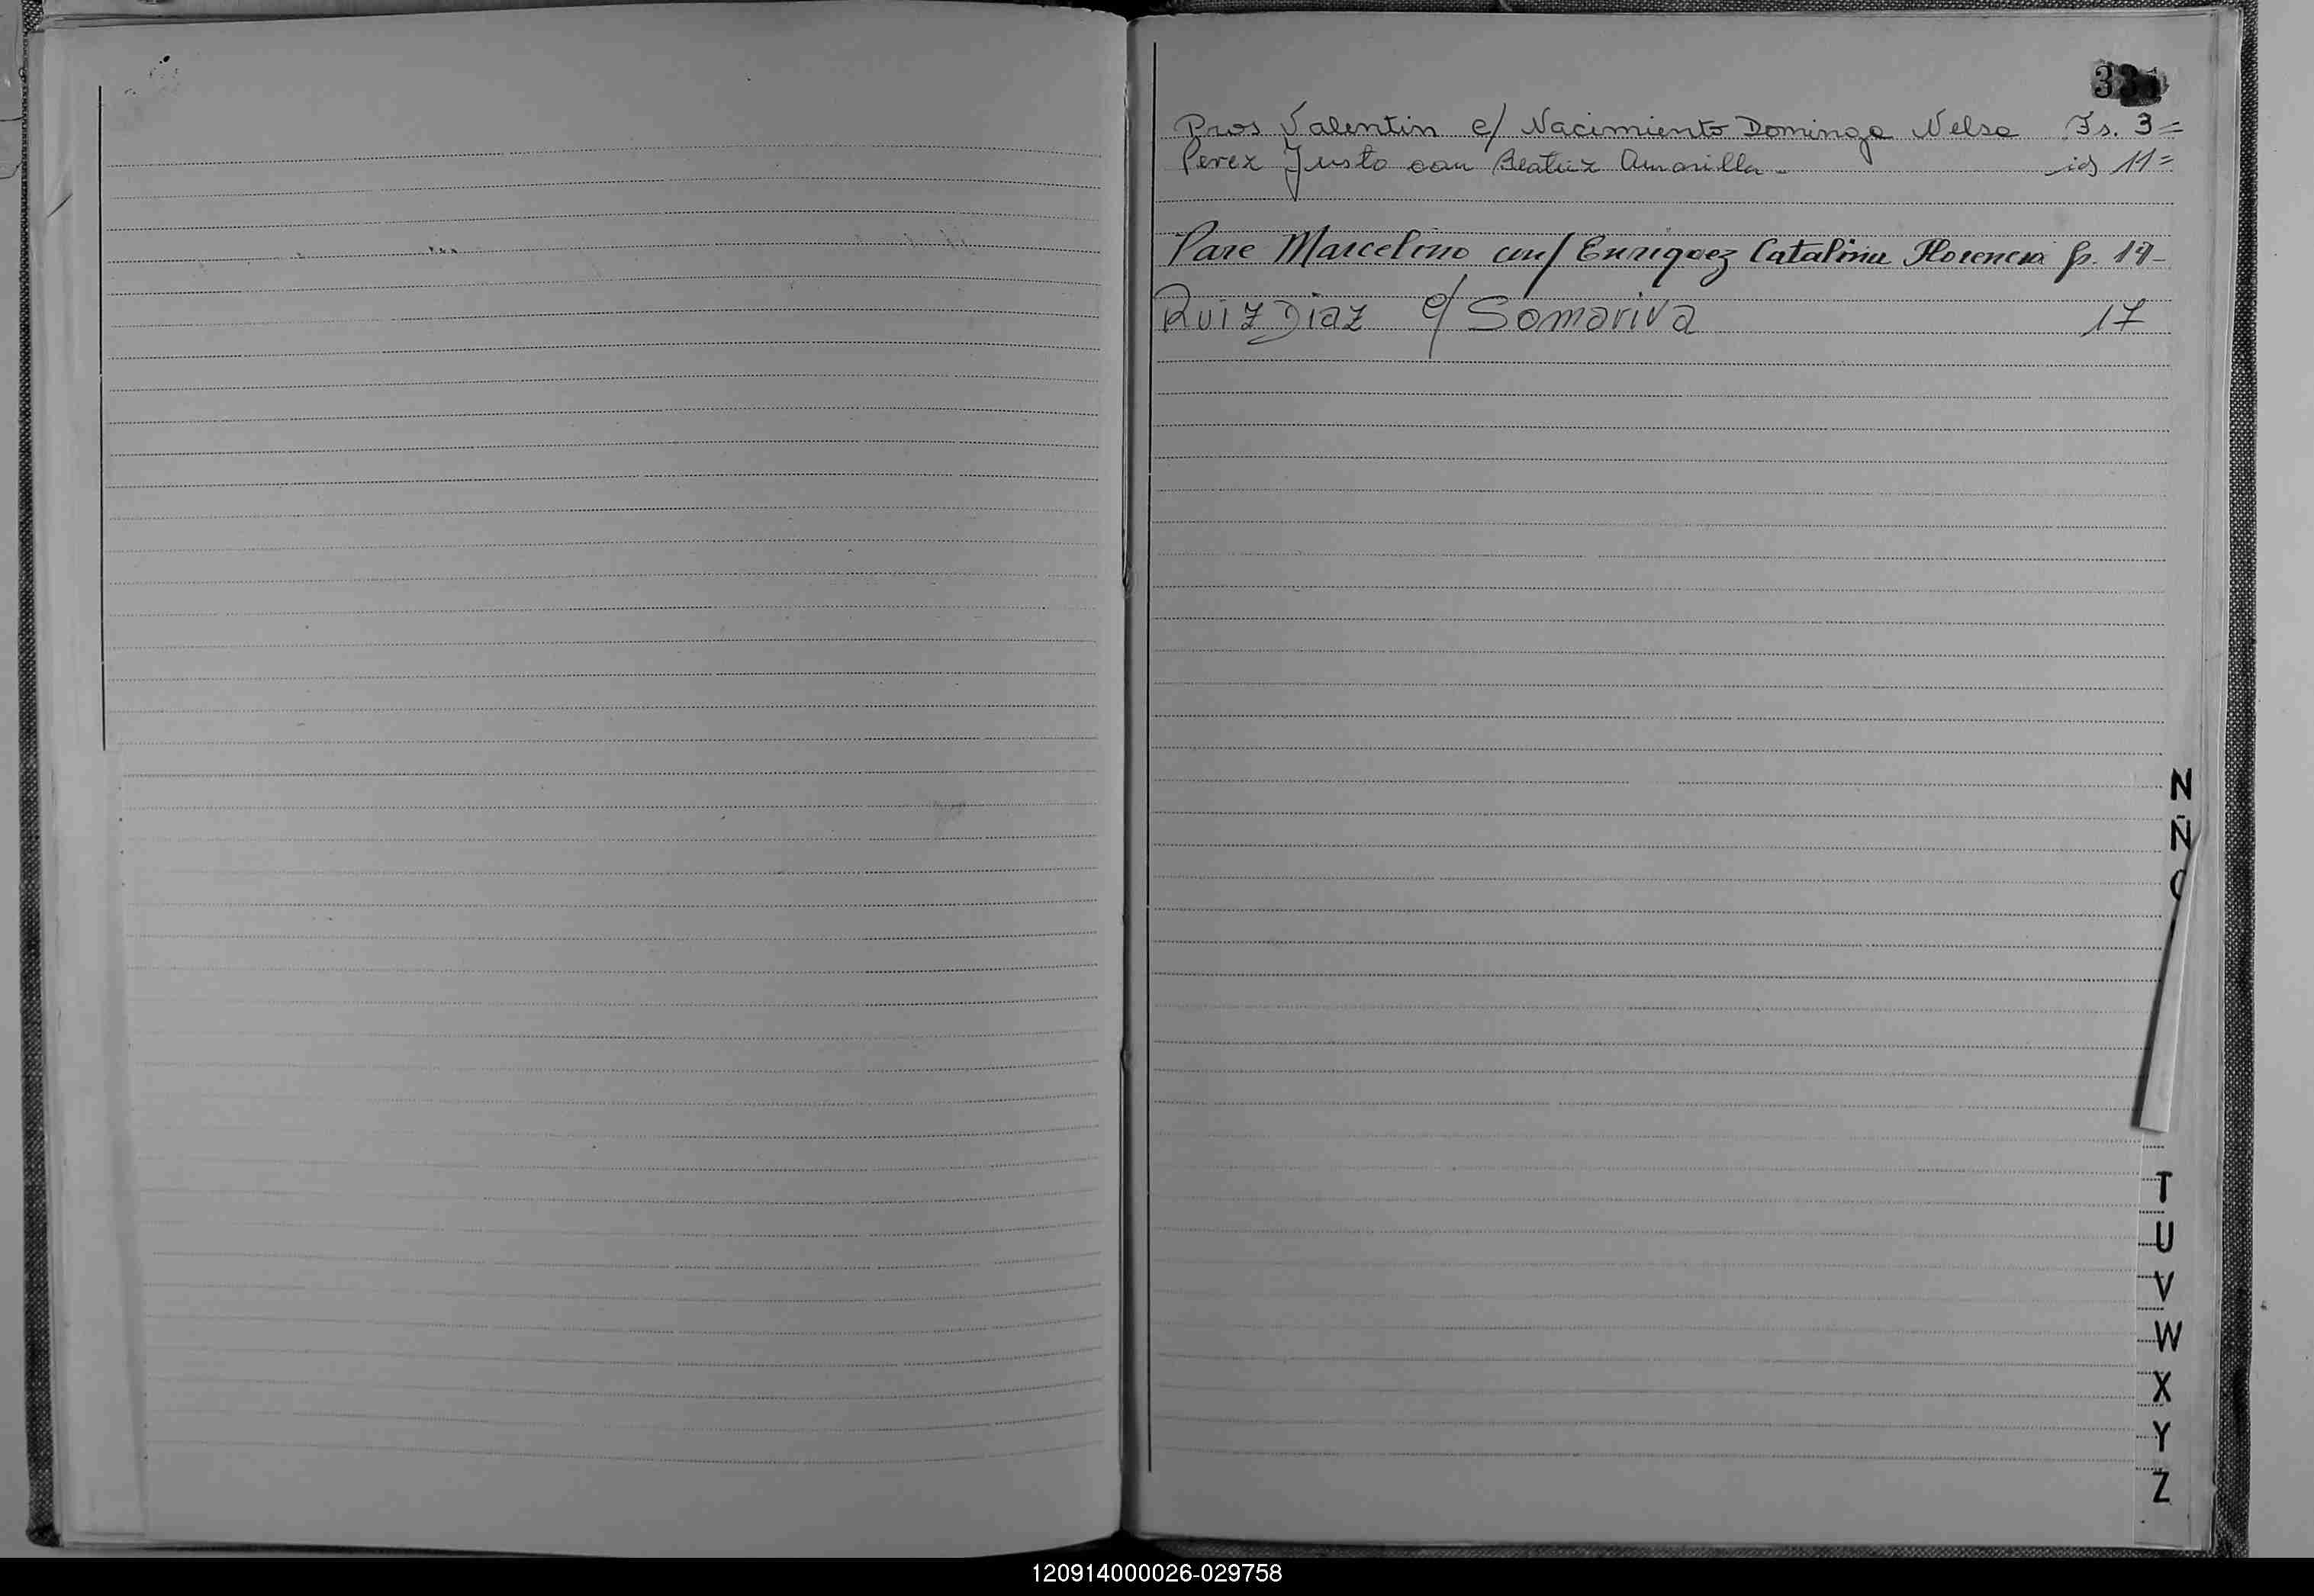 Pros Valentin c/ Nacimiento Dominga Nelsa Fs. 3=
Perez Justo con Beatriz Amarilla - id 11=
Pare Marcelino con/ Enriquez Catalina Florencia fs. 14-
Ruiz Diaz c/ Somariva 17
N
Ñ
T
U
V
W
X
Y
Z
120914000026-029758